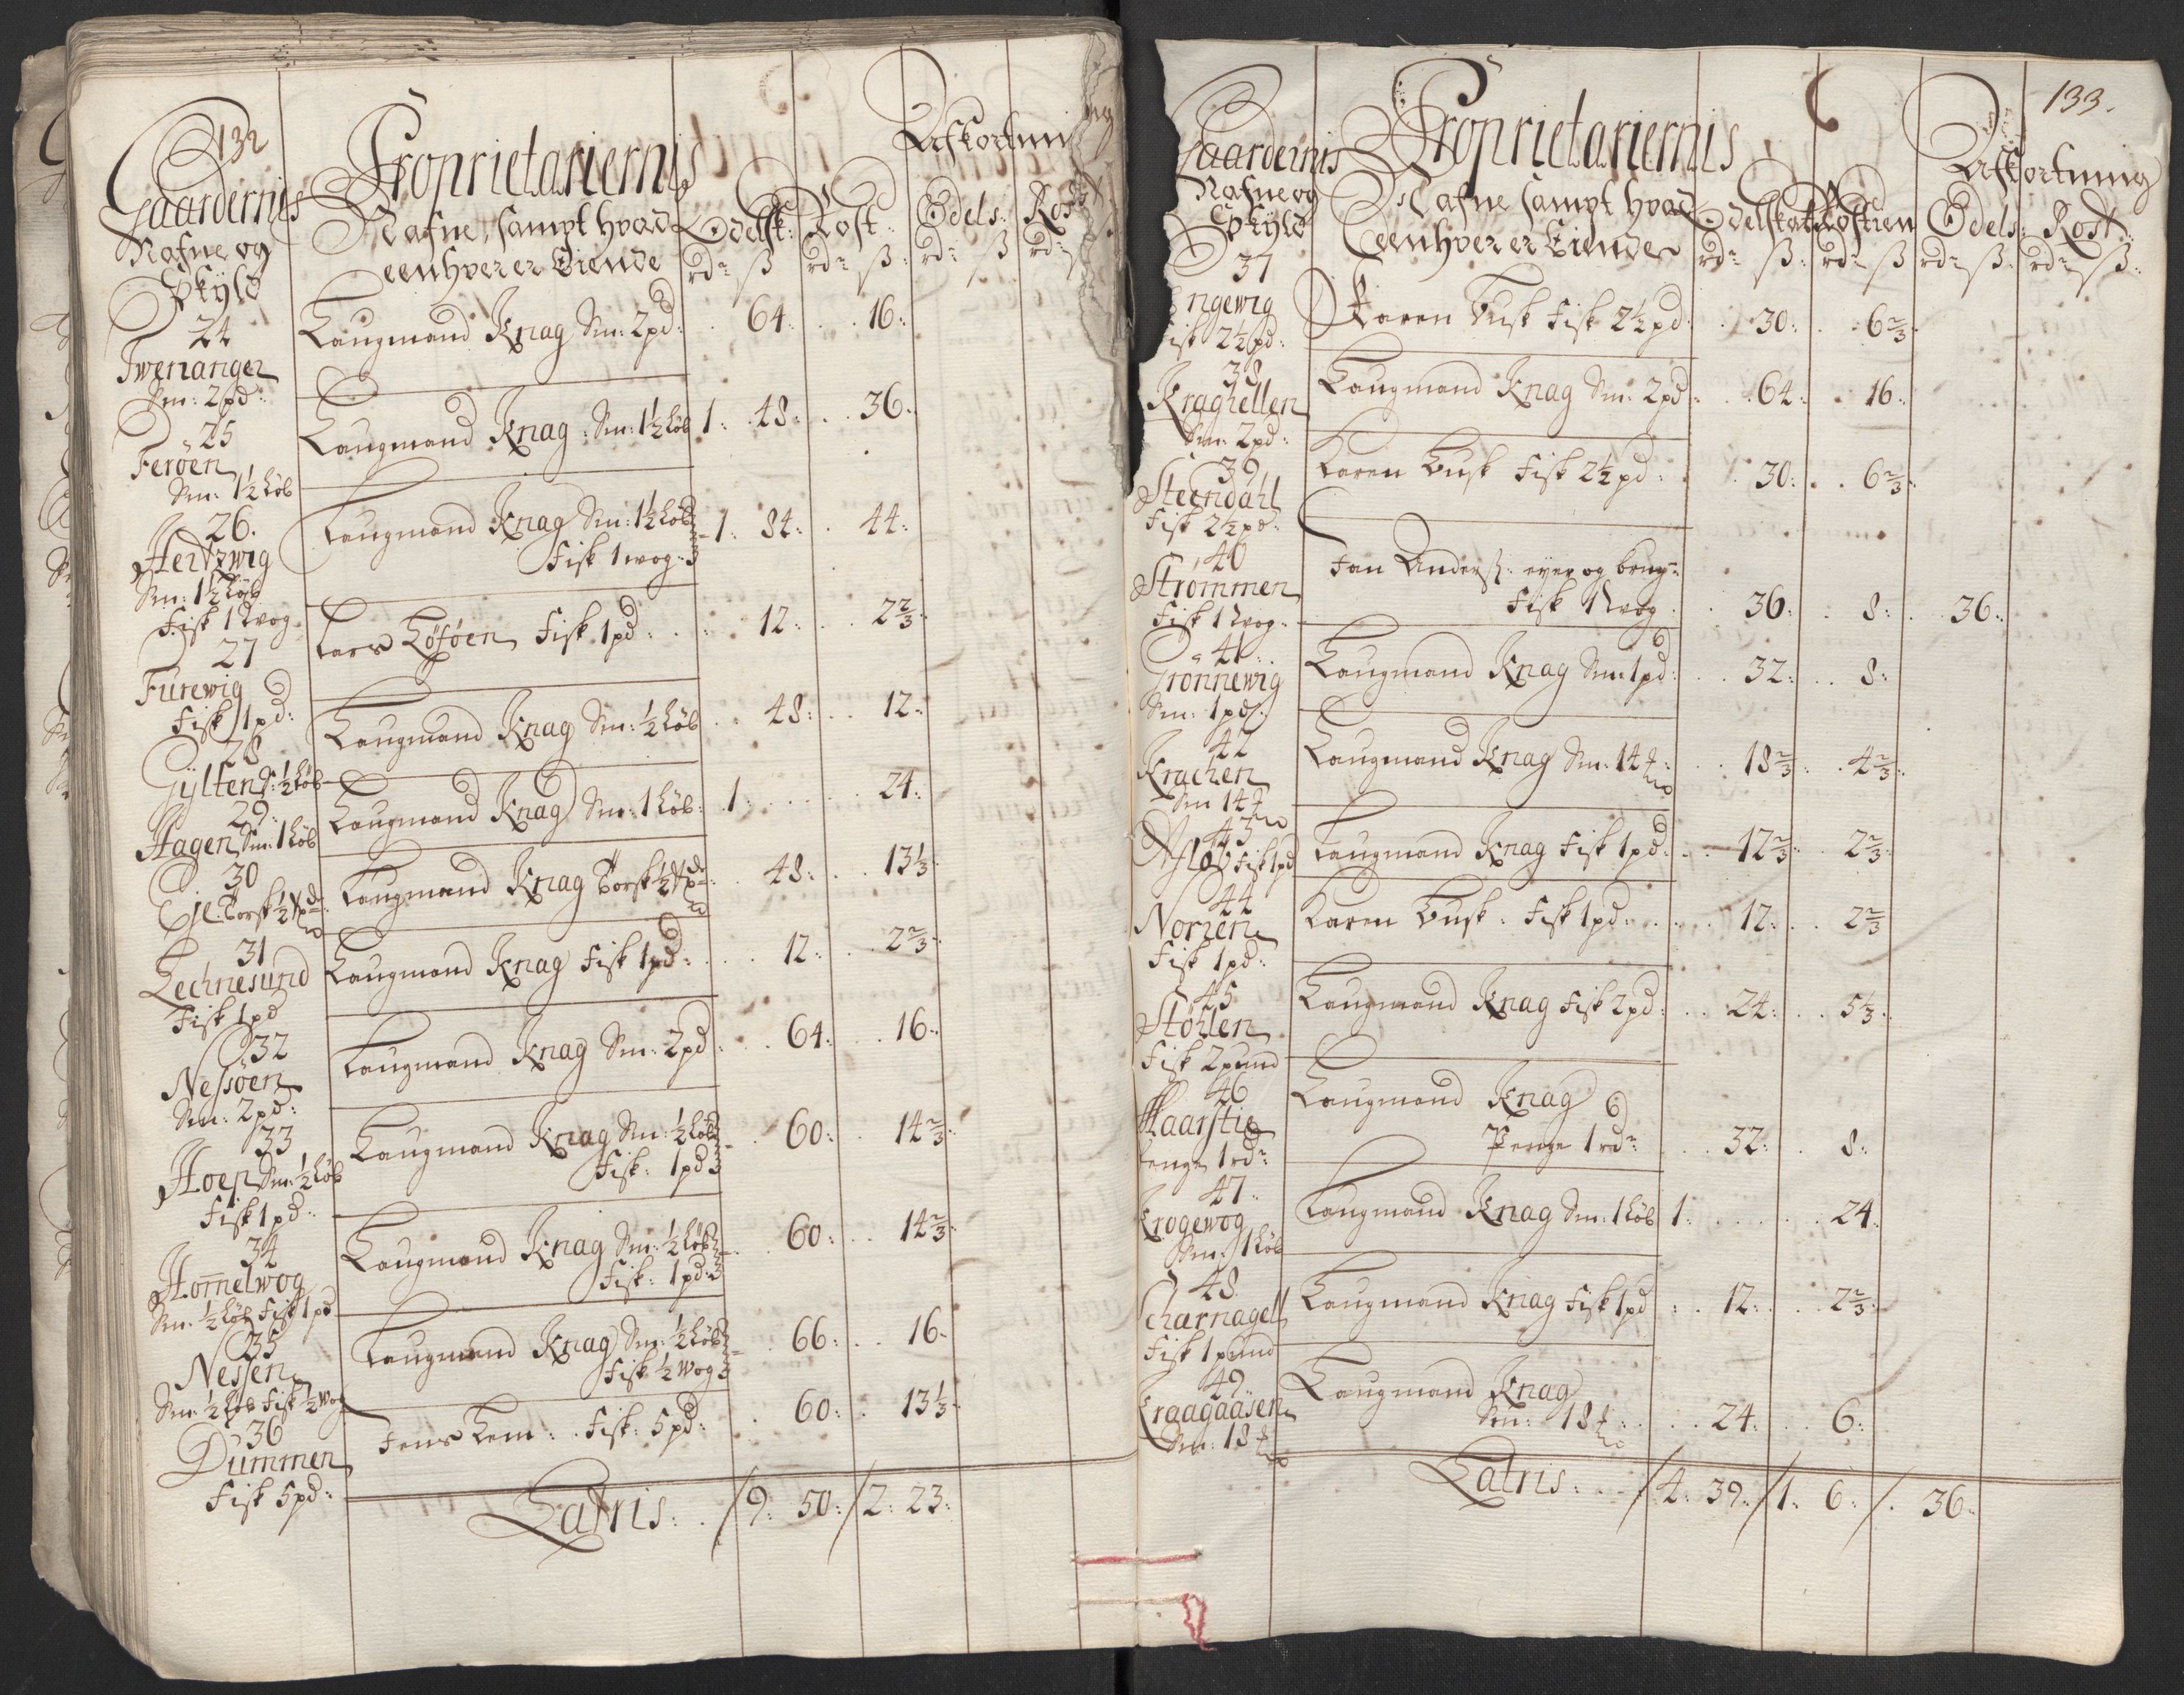 132
Gaardernis
Nafne og
Skyld
Proprietariernis
Nafne, sampt hvad
eenhver er Eiende
Afkortning
Odelsk: Rost: Odels: Rost:
rdr ß rdr ß: rdr ß rdr ß
24
Twenanger
Sm: 2pd:
Laugmand Knag Sm: 2pd: . . 64: . . 16:
25
Feröen
Sm: 1½ löb
Laugmand Knag: Sm: 1½ löb 1: . 48: . . 36:
26.
Hertzwig
Sm: 1½ löb
Fisk 1 wog
Laugmand Knag Sm: 1½ löb
Fisk 1 wog: 1: 84: . 44:
27
Furewig
Fisk 1pd:
Lars Fisk 1pd: . . 12: . . 2⅔:
28
Gylten S: ½ löb
Laugmand Knag Sm: ½ löb . . 48: . . 12:
29:
Hagen Sm: 1 löb
Laugmand Knag Sm: 1 löb: 1: . . . . 24:
30
Torsk ½
Laugmand Knag Torsk ½ . 48: . . 13⅓:
31
Lechnesund
Fisk 1pd
Laugmand Knag Fisk 1pd: . . 12: . . 2⅔:
32
Nessöen
Sm: 2pd:
Laugmand Knag Sm: 2pd: . . 64: . . 16:
33
Hoep Sm: ½ löb
Fisk 1pd:
Laugmand Knag Sm: ½ löb
Fisk: 1pd . 60: . 14⅔:
34
Hornelwog
Sm: ½ löb Fisk 1pd
Laugmand Knag Sm: ½ löb
Fisk: 1pd: . 60: . . 14⅔:
35
Nessen
Sm: ½ löb Fisk ½ wog
Laugmand Knag Sm: ½ löb
Fisk ½ wog . 66: . . 16.
36
Dummen
Fisk 5pd:
Jens Lem: . Fisk: 5pd: . 60: . 13⅓:
Latris: . . / 9: 50: / 2: 23:
133.
Gaardernis
Nafne og
Skyld
Proprietariernis
Nafne sampt hvad
eenhver er Eiende
Afkortning
Odelskat Rostien Odels: Rost:
rdr ß: rdr ß rdr ß: rdr ß:
37
ngewig
isk 2½pd:
Karen Busk Fisk 2½pd: . . 30: . . 6⅔:
38
Kraghellen
Sm: 2pd:
Laugmand Knag Sm: 2pd: . . 64: . 16:
39
Steendahl
Fisk 2½pd:
Karen Busk Fisk 2½pd: . . 30: . . 6⅔:
40
Strömmen
Fisk 1 wog:
Jan Anderss: eyer og brug:
Fisk 1 wog . . 36: . 8: . 36:
41
Grönnewig
Sm: 1pd:
Laugmand Knag Sm: 1pd: . . 32: . . 8:
42
Krachen
Sm 14
Laugmand Knag Sm: 14 . . 18⅔: . 4⅔:
43
Fisk 1pd
Laugmand Knag Fisk 1pd: . . 12⅔: . 2⅔:
44
Norien
Fisk 1pd:
Karen Busk: Fisk 1pd: . . . 12: . . 2⅔
45
Stöhlen
Fisk 2pund
Laugmand Knag Fisk 2pd: . . 24: . . 5⅓:
46
Skaarstie
enge 1rdr:
Laugmand Knag
Penge 1rdr: . . 32: . . 8:
47:
Krogewog
Sm: 1 löb
Laugmand Knag Sm: 1 löb 1: . . . . . 24:
48
Scharnagell
Fisk 1pund
Laugmand Knag Fisk 1pd: . . 12: . . . 2⅔:
49
Kraagaasen
Sm: 18
Laugmand Knag
Sm: 18 . . 24: . . 6:
Latris: . . . / 4: 39: / 1: 6: / . 36: